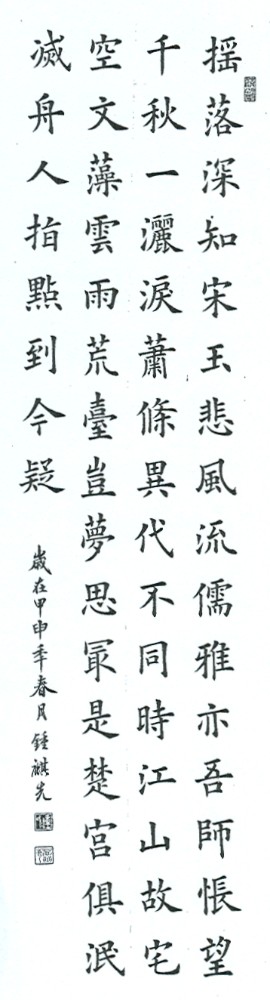 搖落深知宋玉悲風流儒雅亦吾師悵望
千秋一灑淚蕭條異代不同時江山故宅
空文藻雲雨荒臺豈夢思冣是楚宮俱泯
滅舟人指點到今疑
歲在甲申秊春月鍾祺先